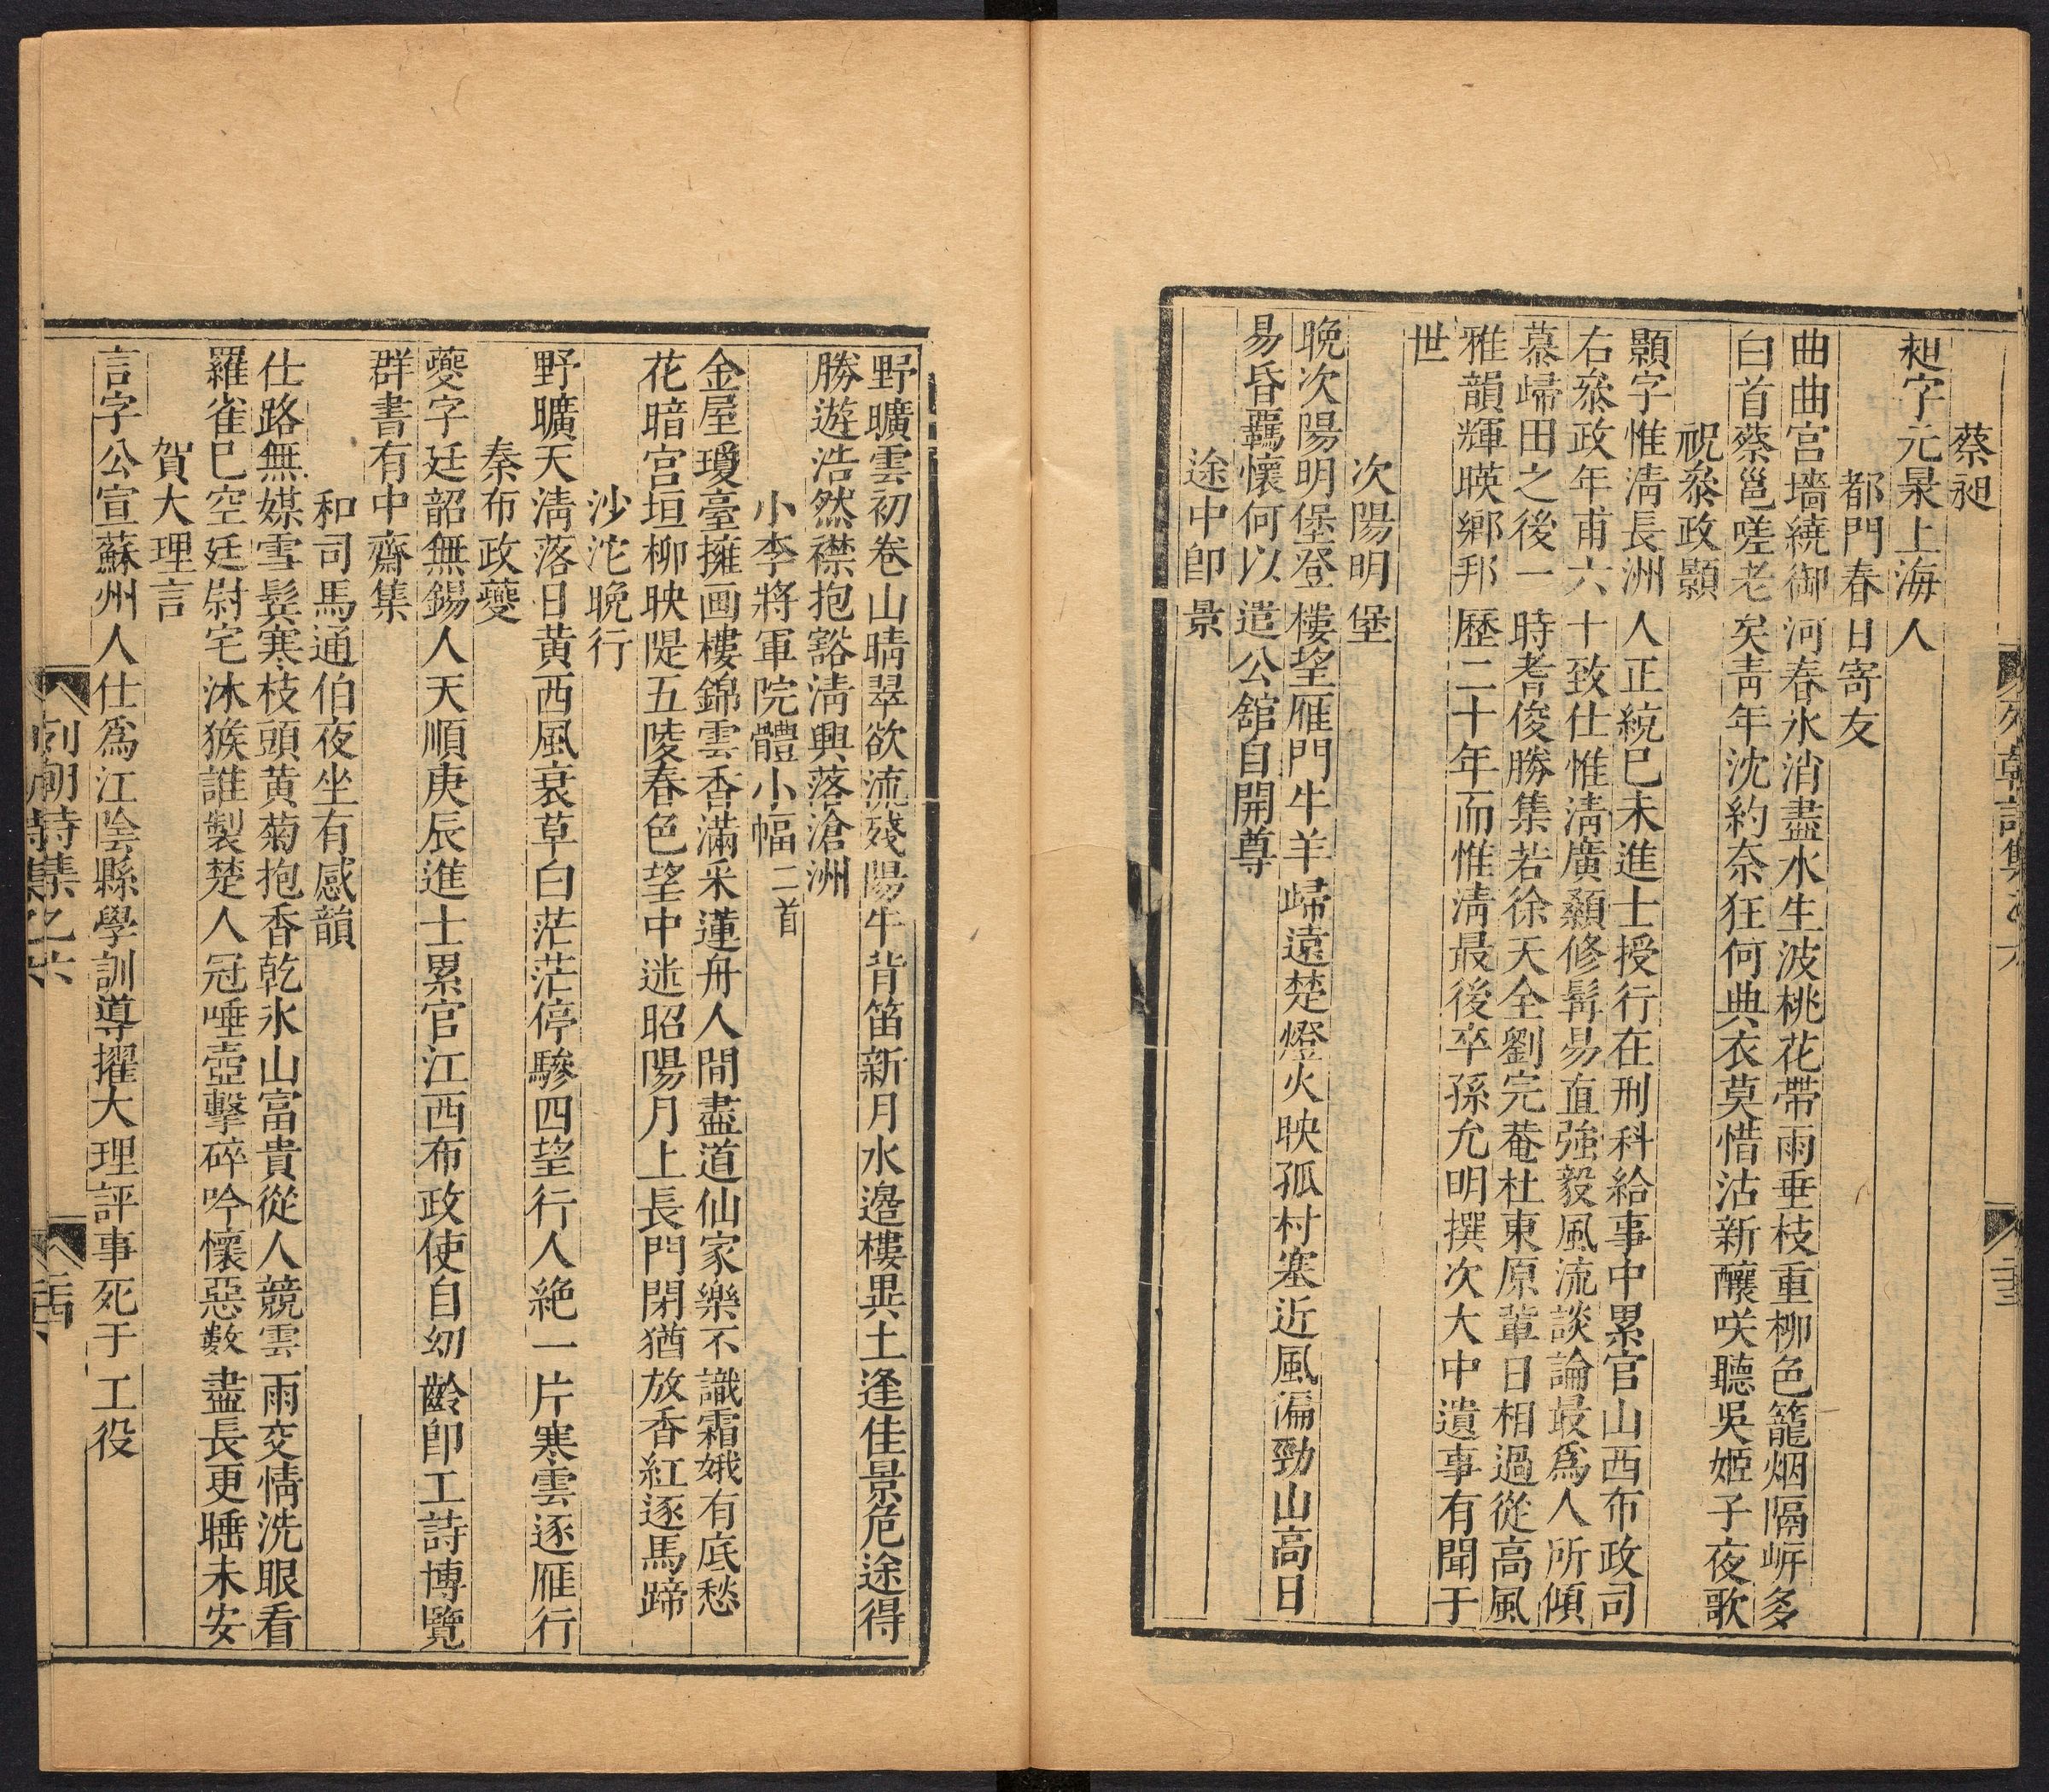 蔡昶
昶字元杲上海人
都門春日寄友
曲曲宫墻繞御河春氷消盡水生波桃花帶雨垂枝重柳色籠烟隔㟁多
白首蔡邕嗟老矣靑年沈約奈狂何典衣莫惜沽新釀咲聽吳姬子夜歌
祝叅政顥
顥字惟淸長洲人正統巳未進士授行在刑科給事中累官山西布政司
右叅政年甫六十致仕惟淸廣顙修髯易直強毅風流談論最爲人所傾
慕歸田之後一時耆俊勝集若徐天全劉完菴杜東原輩日相過從高風
雅韻輝暎鄕邦歷二十年而惟淸最後卒孫允明撰次大中遺事有聞于
世
次陽明堡
晚次陽明堡登樓望雁門牛羊歸遠楚燈火映孤村塞近風偏勁山高日
易昏羈懷何以遣公舘自開尊
途中卽景
野曠雲初卷山晴翠欲流殘陽牛背笛新月水邉樓異土逢佳景危途得
勝遊浩然襟抱豁淸興落滄洲
小李將軍院體小幅二首
金屋瓊臺擁画樓錦雲香滿采蓮舟人間盡道仙家樂不識霜娥有底愁
花暗宫垣柳映隄五陵春色望中迷昭陽月上長門閉猶放香紅逐馬蹄
沙沱晚行
野曠天淸落日黄西風衰草白茫茫停驂四望行人絶一片寒雲逐雁行
秦布政夔
夔字廷韶無錫人天順庚辰進士累官江西布政使自幼齡卽工詩博覽
群書有中齋集
和司馬通伯夜坐有感韻
仕路無媒雪鬂寒枝頭黄菊抱香乾氷山富貴從人競雲雨交情洗眼看
羅雀巳空廷尉宅沐猴誰製楚人冠唾壺擊碎吟懷惡數盡長更睡未安
賀大理言
言字公宣蘇州人仕爲江陰縣學訓導擢大理評事死于工役
列朝詩集乙六